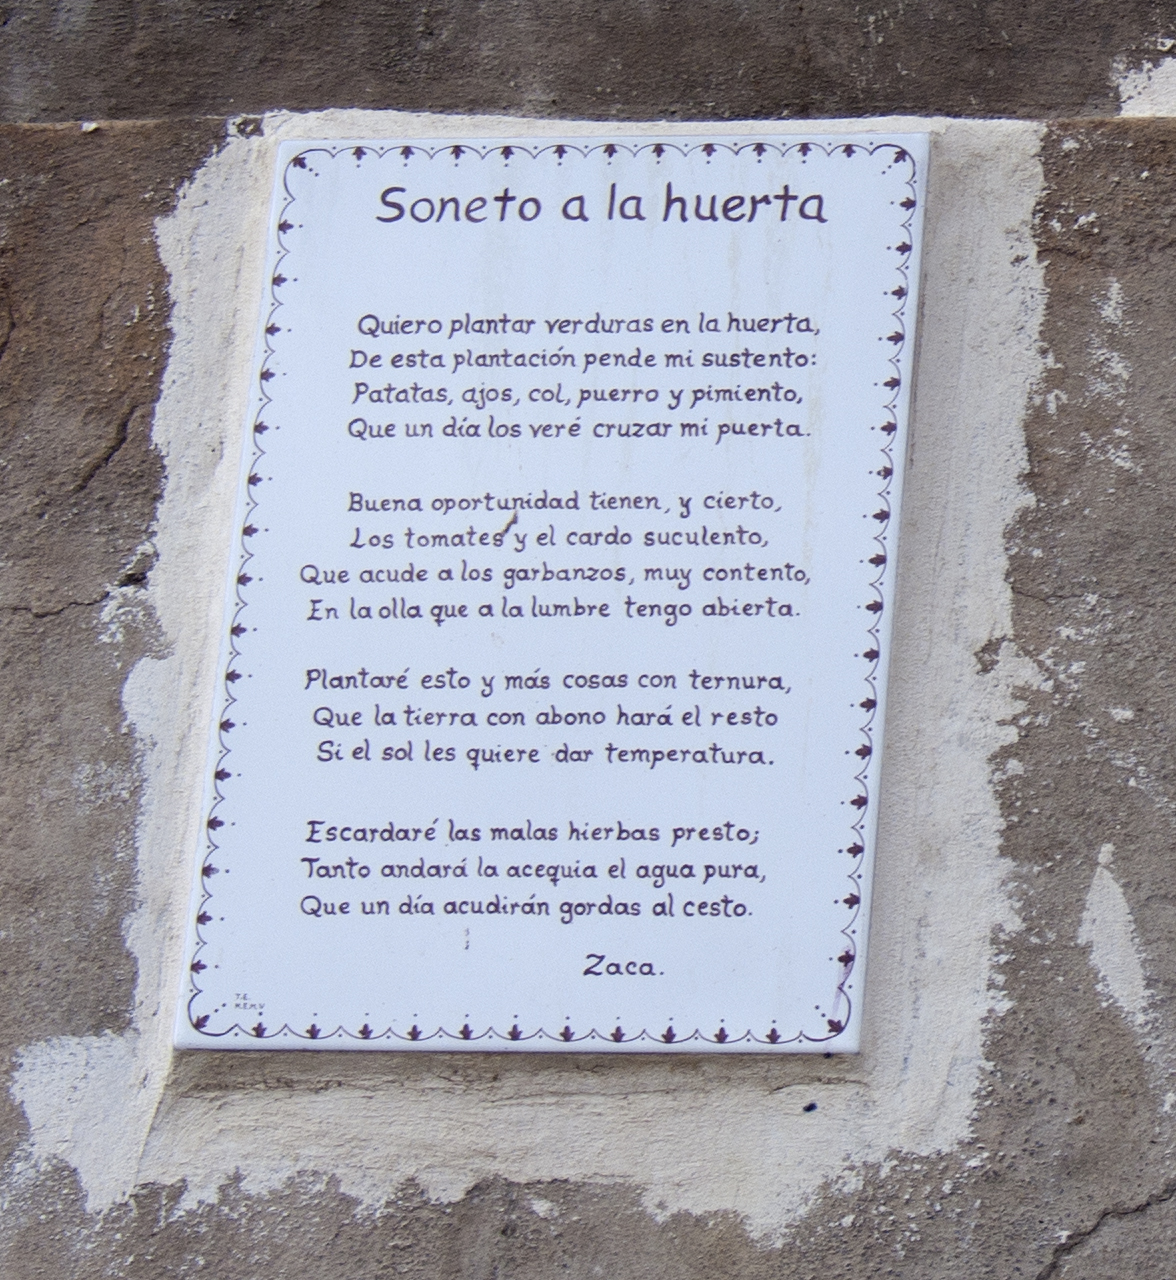 Soneto a la huerta
Quiero plantar verduras en la huerta,
De esta plantación pende mi sustento:
Patatas, ajos, col, puerro y pimiento,
Que un día los veré cruzar mi puerta.
Buena oportunidad tienen, y cierto,
Los tomates y el cardo suculento,
Que acude a los garbanzos, muy contento,
En la olla que a la lumbre tengo abierta.
Plantaré esto y más cosas con ternura,
Que la tierra con abono hará el resto
Si el sol les quiere dar temperatura.
Escardaré las malas hierbas presto;
Tanto andará la acequia el agua pura,
Que un día acudirán gordas al cesto.
Zaca.
T.E.